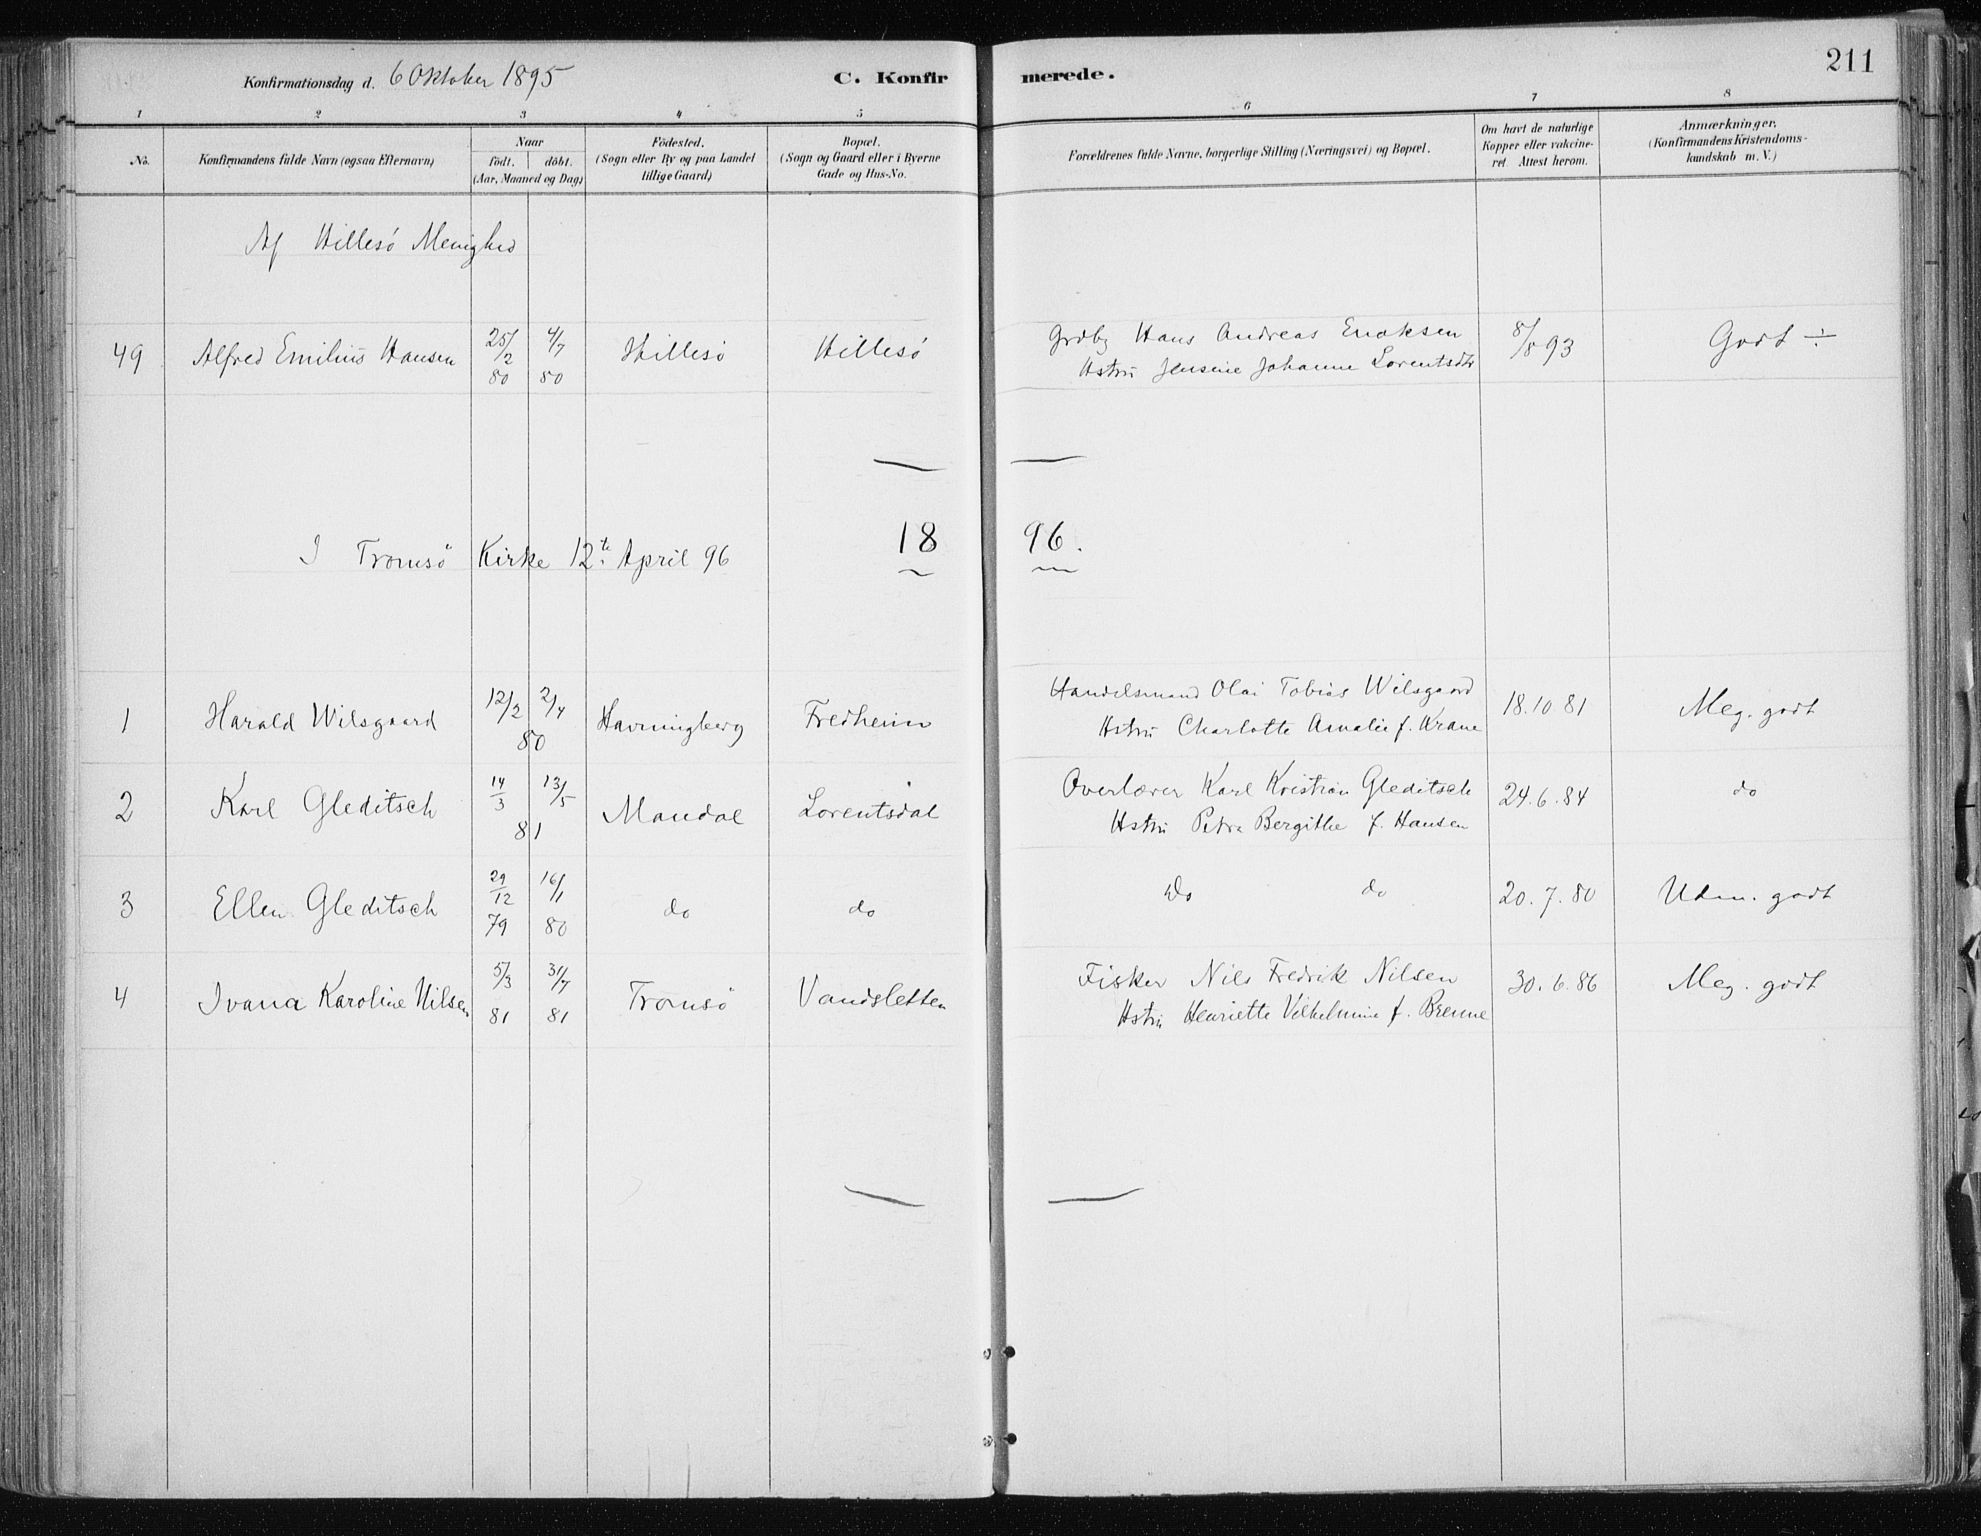 Konfirmationsdag d. 6 Oktober 1895
C. Konfirmerede.
211
1 2 3 4 5 6 7 8
No.
Konfirmandens fulde Navn (ogsaa Efternavn)
Naar
födt. döbt.
(Aar, Maaned og Dag)
Födested.
(Sogn eller By og paa Landet
tillige Gaard)
Bopæl.
(Sogn og Gaard eller i Byerne
Gade og Hus-No.
Forældrenes fulde Navne, borgerlige Stilling (Næringsvei) og Bopæl.
Om havt de naturlige
Kopper eller vakcine-
ret. Attest herom.
Anmærkninger.
(Konfirmandens Kristendoms-
kundskab m. V.)
Af Hillesö Menighed
49 Alfred Emilius Hansen 25/2 80 4/7 80 Hillesö Hillesö Grdbg Hans Andreas Enoksen 8/8 93 Godt ÷
Hstru Jensine Johanne Lorentsdtr
I Tromsö Kirke 12te April 96
1896.
1 Harald Wilsgaard 12/2 2/4 80 Havningberg Fredheim Handelsmand Olai Tobias Wilsgaard 18.10.81 Meg. godt
Hstru Charlotte Amalie f. Krane
2 Karl Gleditsch 14/3 13/5 81 Mandal Lorentsdal Overlærer Karl Kristian Gleditsch 24.6.84 do
Hstru Petra Bergithe f. Hansen
3 Ellen Gleditsch 29/12 79 16/1 80 do do Do do 20.7.80 Udm. godt
4 Ivana Karoline Nilsen 5/3 81 31/7 81 Tromsö Vandsletten Fisker Nils Fredrik Nilsen 30.6.86 Meg. godt
Hstru Henriette Vilhelmine f. Brenne